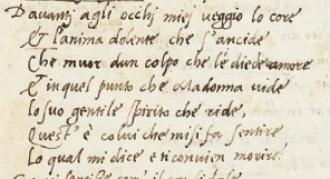 Dauantj agli occhj miej ueggio lo core
Et l'anima dolente che s'ancide
Che muor dun colpo che le diede amore
Et in quel punto che Madonna uide
lo suo gentile spirito che ride,
Quest' è colui che mi si fa sentire
lo qual mi dice e ti conuien morire.